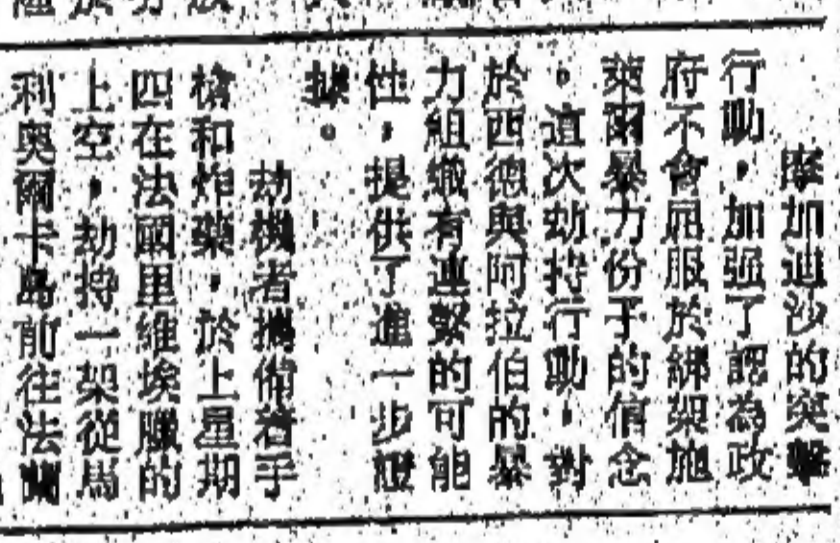 摩加迪沙的突擊
行動，加强了認為政
府不會屈服於綁架施
萊爾暴力份子的信念
。這次劫持行動，對
於西德與阿拉伯的暴
力組織有連繫的可能
性，提供了進一步證
據。
劫機者攜備着手
槍和炸藥，於上星期
四在法國里維埃臘的
上空，劫持一架從馬
利奥爾卡島前往法蘭